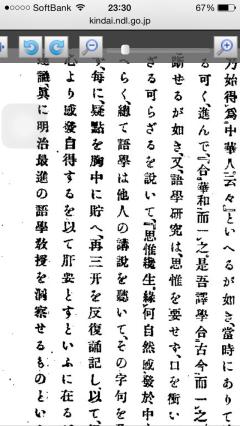 SoftBank 23:30 67%
kindai.ndl.go.jp
乃始得爲中華人云々』といへるが如き、當時にありて
る可く、進んで『合華和而一之、是吾譯學、合古今而一之、
斷せるが如き、又、語學研究は、思惟を要せず、口を衝い
ざる可らざるを説いて、『思惟纔生、緣何自然感發於中
へらく、總て語學は他人の講説を聽いて、その字句を
ず、每に、疑點を胸中に貯へ、再三开を反復誦記し、以て、
心より感發自得するを以て肝要とすといふに在る
達識眞に明治最進の語學敎授を洞察せるものとい